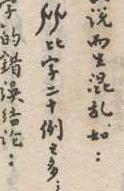 说而生混乱如：
比字二十例之多；
字的錯误结论：